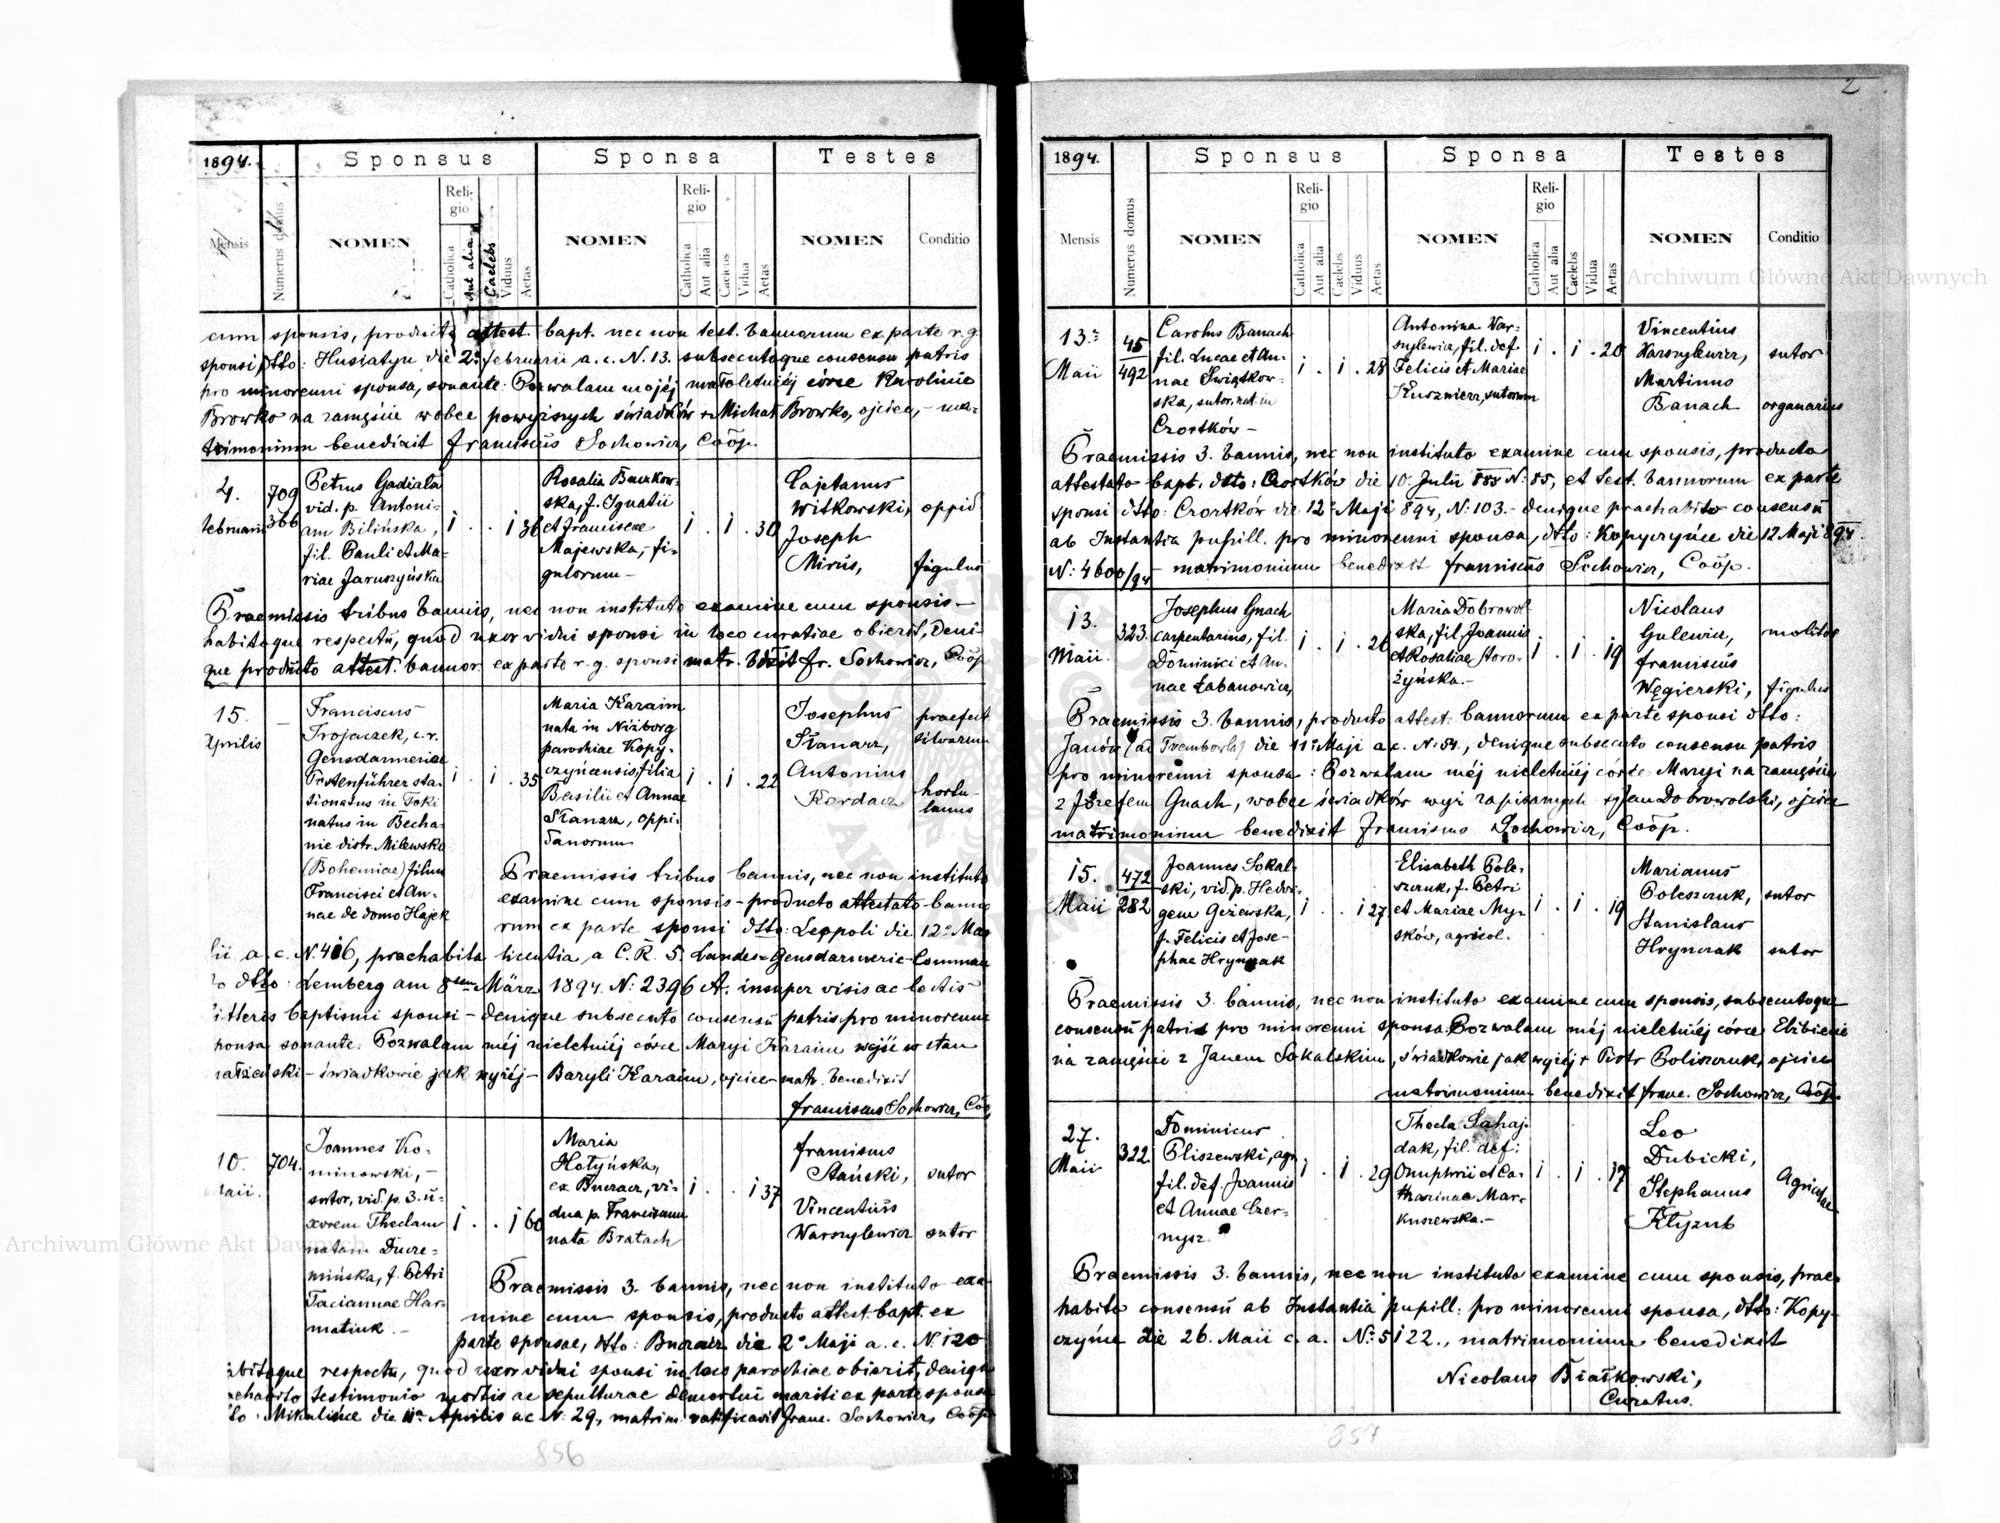 2
1894.
Sponsus
Sponsa
Testes
Mensis
Numerus domus
NOMEN
Religio
Catholica
Aut alia
Caelebs
Viduus
Aetas
NOMEN
Religio
Catholica
Aut alia
Caelebs
Vidua
Aetas
NOMEN
Conditio
cum sponsis, producto attest. bapt. nec non test. bannorum ex parte r. g.
sponsi dtto: Husiatyn die 2ª februarii, a. c. N. 13. subsecutoque consensu patris
pro minorenni sponsa, sonante: Pozwalam mojéj małoletniéj córce Karolinie
Browko na zamęście wobec powyższych świadków + Michał Browko, ojciec, – ma-
trimonium benedixit Franciscus Sochowicz, Coōp.
4.
februarii
709
366
Petrus Gadiała
vid. p. Antoni-
am Bilińska,
fil. Pauli et Ma-
riae Jaruszyńska
i . . i 36
Rosalia Buczkow-
ska, f. Ignatii
et Franciscae
Majewska, – fi-
gulorum –
i . i . 30
Cajetanus
Witkowski, oppid
Joseph
Mirus, figulus
Praemissis tribus bannis, nec non instituto examine cum sponsis –
habitoque respectu, quod uxor vidui sponsi in loco curatiae obierit, deni-
que producto attest. bannor. ex parte r. g. sponsi matr. bdxit fr. Sochowicz, Coōp
15.
Aprilis
–
Franciscus
Trojaczek, c. r.
Gensdarmeriae
Postenführer sta-
tionatus in Toki
natus in Becha-
nie distr. Milewsko
(Bohemiae) filius
Francisci et An-
nae de domo Hajek
i . i . 35
Maria Karaim
nata in Niżborg
parochiae Kopy-
czyńcensis, filia
Basilii et Annae
Stanarz, oppi-
danorum
i . i . 22
Josephus
Stanarz, praefect. silvarum
Antonius
Kordacz hortulanus
Praemissis tribus bannis, nec non instituto
examine cum sponsis – producto attestato banno
rum ex parte sponsi dtto: Leopoli die 12ª Mar
tii a. c. N. 416, praehabita licentia a C. R. 5. Landes-Gensdarmerie-Comman
do dtto: Lemberg am 8ten März 1894 N: 2396 A. insuper visis ac lectis
litteris baptismi sponsi – denique subsecuto consensu patris pro minorenni
sponsa sonante: Pozwalam méj nieletniéj córce Maryi Karaim wejść w stan
małżeński – świadkowie jak wyżéj – Baryli Karaim, ojciec – matr. benedixit
Franciscus Sochowicz, Coō
10.
Maii.
704.
Joannes Ko-
minowski, –
sutor, vid. p. 3. u-
xorem Theclam
natam Ducze-
mińska, f. Petri
Taciannae Har-
matiuk. –
i . . i 60
Maria
Hołyńska,
ex Buczacz, vi-
dua p. Franciscum
nata Bratach
i . . i 37
Franciscus
Stański, sutor
Vincentius
Warszylewicz sutor
Praemissis 3. bannis, nec non instituto exa-
mine cum sponsis, producto attest. bapt. ex
parte sponsae, dtto: Buczacz die 2ª Maji a. c. N. 120
habitoque respectu, quod uxor vidui sponsi in loco parochiae obierit, denique
praehabito testimonio mortis ac sepulturae demortui mariti ex parte sponsae
dtto: Mikulińce die 11ª Aprilis a c N. 29, matrim. ratificavit Franc. Sochowicz, Coōp
856
1894.
Sponsus
Sponsa
Testes
Mensis
Numerus domus
NOMEN
Religio
Catholica
Aut alia
Caelebs
Viduus
Aetas
NOMEN
Religio
Catholica
Aut alia
Caelebs
Vidua
Aetas
NOMEN
Conditio
13.
Maii
45
492
Carolus Banach
fil. Lucae et An-
nae Swiątkow-
ska, sutor, nat. in
Czortków –
i . i . 28
Antonina War-
szylewicz, fil. def.
Felicis et Mariae
Kusznierz, sutorum
i . i . 20
Vincentius
Warszylewicz, sutor
Martinus
Banach organarius
Praemissis 3. bannis, nec non instituto examine cum sponsis, producto
attestato bapt. dtto: Czortków die 10. Julii N: 85, et test. bannorum ex parte
sponsi dtto: Czortków die 12ª Maji 894, N: 103. – denique praehabito consensu
ab Instantia pupill. pro minorenni sponsa, dtto: Kopyczyńce die 12 Maji 894.
N: 4600/94 – matrimonium benedixit Franciscus Sochowicz, Coōp.
13.
Maii.
323.
Josephus Gnach
carpentarius, fil.
Dominici et An-
nae Łabanowicz,
i . i . 26
Maria Dobrowol-
ska, fil. Joannis
et Rosaliae Storo-
żyńska. –
i . i . 19
Nicolaus
Gulewicz, molitor
Franciscus
Węgierski, figulus
Praemissis 3. bannis, producto attest. bannorum ex parte sponsi dtto:
Janów (ad Trembowla) die 11ª Maji a. c. N: 84., denique subsecuto consensu patris
pro minorenni sponsa: Pozwalam méj nieletniéj córce Maryi na zamęście
z Józefem Gnach, wobec świadków wyż zapisanych + Jan Dobrowolski, ojciec
matrimonium benedixit Franciscus Sochowicz, Coōp.
15.
Maii
472
282
Joannes Sokal-
ski, vid. p. Hedvi-
gem Geżewska,
f. Felicis et Jose-
phae Hrynczak
i . . i 27
Elisabeth Bole-
szczuk, f. Petri
et Mariae My-
sków, agricol.
i . i . 19
Marianus
Boleszczuk, sutor
Stanislaus
Hrynczak sutor
Praemissis 3. bannis, nec non instituto examine cum sponsis, subsecutoque
consensu patris pro minorenni sponsa: Pozwalam méj nieletniéj córce Elżbiecie
na zamęście z Janem Sokalskim, świadkowie jak wyżéj + Piotr Boliszczuk, ojciec
matrimonium benedixit Franc. Sochowicz, Coōp.
27.
Maii
322.
Dominicus
Pliszewski, agr.
fil. def. Joannis
et Annae Czer-
nysz.
i . i . 29
Thecla Sahaj-
dak, fil. def:
Onuphrii et Ca-
tharinae Mar-
kuszewska. –
i . i . 17
Leo
Dubicki,
Stephanus
Kłyzub
Agricolae
Praemissis 3. bannis, nec non instituto examine cum sponsis, prae-
habito consensu ab Instantia pupill: pro minorenni sponsa, dtto: Kopy-
czyńce die 26. Maii c. a. N: 5122., matrimonium benedixit
Nicolaus Białkowski,
Curatus.
857
Archiwum Główne Akt Dawnych
Archiwum Główne Akt Dawnych